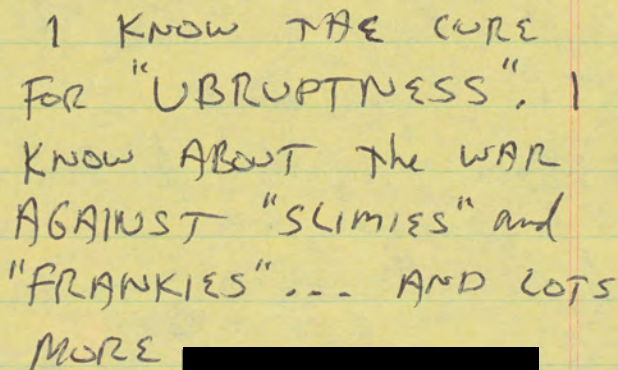 I KNOW THE CURE
FOR "UBRUPTNESS". I
KNOW ABOUT the WAR
AGAINST "SLIMIES" and
"FRANKIES"... AND LOTS
MORE